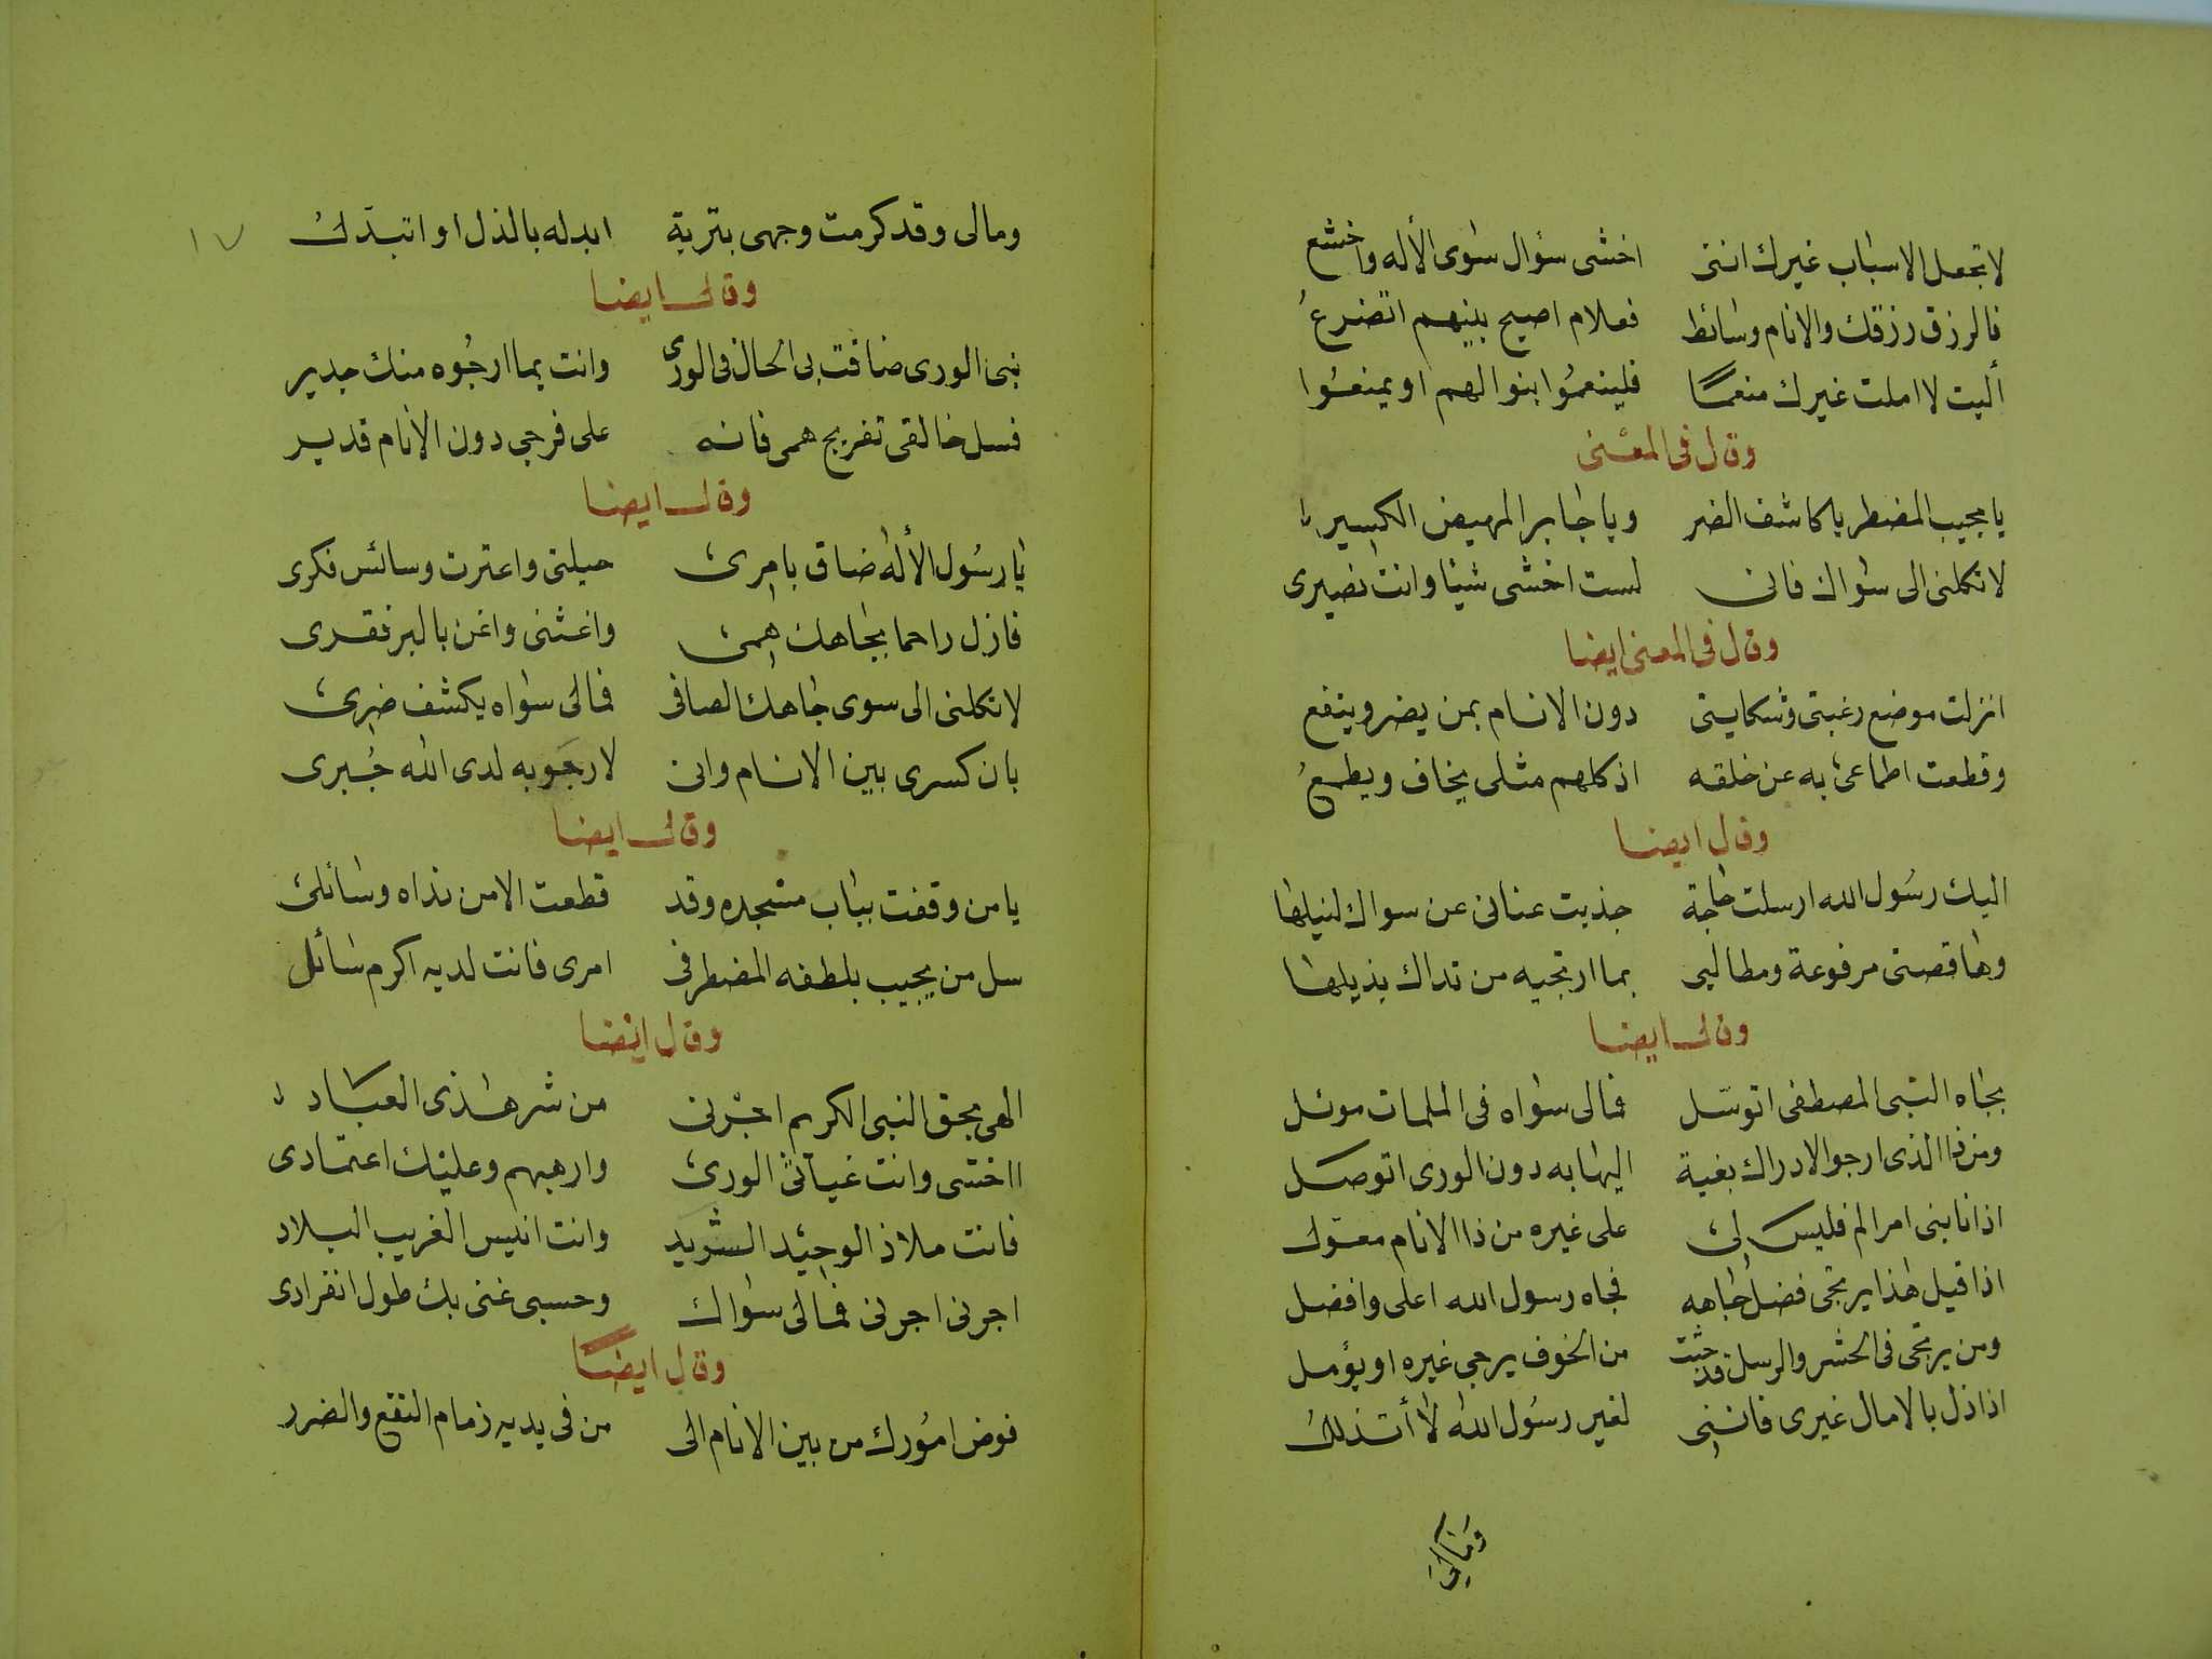 لا تجعل الاسباب غيرك اننى اخشى سؤال سوى الأله واخشع
فالرزق رزقك والانام وسائط فعلام اصيح بينهم اتضرعُ
أليت لا املت غيرك منعمًا فلينعمُوا بنوالهم او يمنعُوا
وقال فى المعنى
يا مجيب المضطر يا كاشف الضر ويا جابر المهيض الكسير
لا تكلنى الى سواك فانى لست اخشى شيئا وانت نصيرى
وقال فى المعنى ايضا
انزلت موضع رغبتى وشكايتى دون الانام بمن يضر وينفع
وقطعت اطماعى به عن خلقه اذ كلهم مثلى يخاف ويطمعُ
وقال ايضا
اليك رسُول الله ارسلت حاجة جذيت عنانى عن سواك لنيلها
وها قصتى مرفوعة ومطالبى بما ارتجيه من نداك بذيلها
وقال ايضا
بجاه النبى المصطفى اتوسّل فمالى سواه فى الملمات موئل
ومن ذا الذى ارجو الادراك بغية اليها به دون الورى اتوصل
اذا نابنى امر الم فليس لى على غيره من ذا الانام معوّل
اذا قيل هذا يرتجى فضل جاهه فجاه رسول الله اعلى وافضل
ومن يرتجى فى الحشر والرسل قد جثت من الخوف يرجى غيره او يؤمل
اذا ذل بالامال غيرى فاننى لغير رسُول الله لا أتذللُ
وَمَالِى
١٧
ومالى وقد كرمت وجهى بتربة ابدله بالذل او اتبدّلُ
وقال ايضا
نبى الورى ضاقت بى الحال فى الورى وانت بما ارجُوه منك جدير
فسل خالقى تفريج همى فانه على فرجى دون الانام قدير
وقال ايضا
يا رسُول الأله ضاق بامرى حيلتى واعترت وسائس فكرى
فازل راحما بجاهك همى واغثنى واغن بالبر فقرى
لا تكلنى الى سوى جاهك الصافى فمالى سواه يكشف ضرى
بان كسرى بين الانام وانى لارجَو به لدى الله جُبرى
وقال ايضا
يا من وقفت بباب مسجده وقد قطعت الامن نداه وسائلى
سل من يجيب بلطفه المضطر فى امرى فانت لديه اكرم سائل
وقال ايضا
الهى بحق النبى الكريم اجرنى من شر هذى العباد
ااخشى وانت غياث الورى وارهبهم وعليك اعتمادى
فانت ملاذ الوحيد الشريد وانت انيس الغريب البلاد
اجرنى اجرنى فمالى سواك وحسبى غنى بك طول انفرادى
وقال ايضًا
فوض امُورك من بين الانام الى من فى يديه زمام النفع والضرر